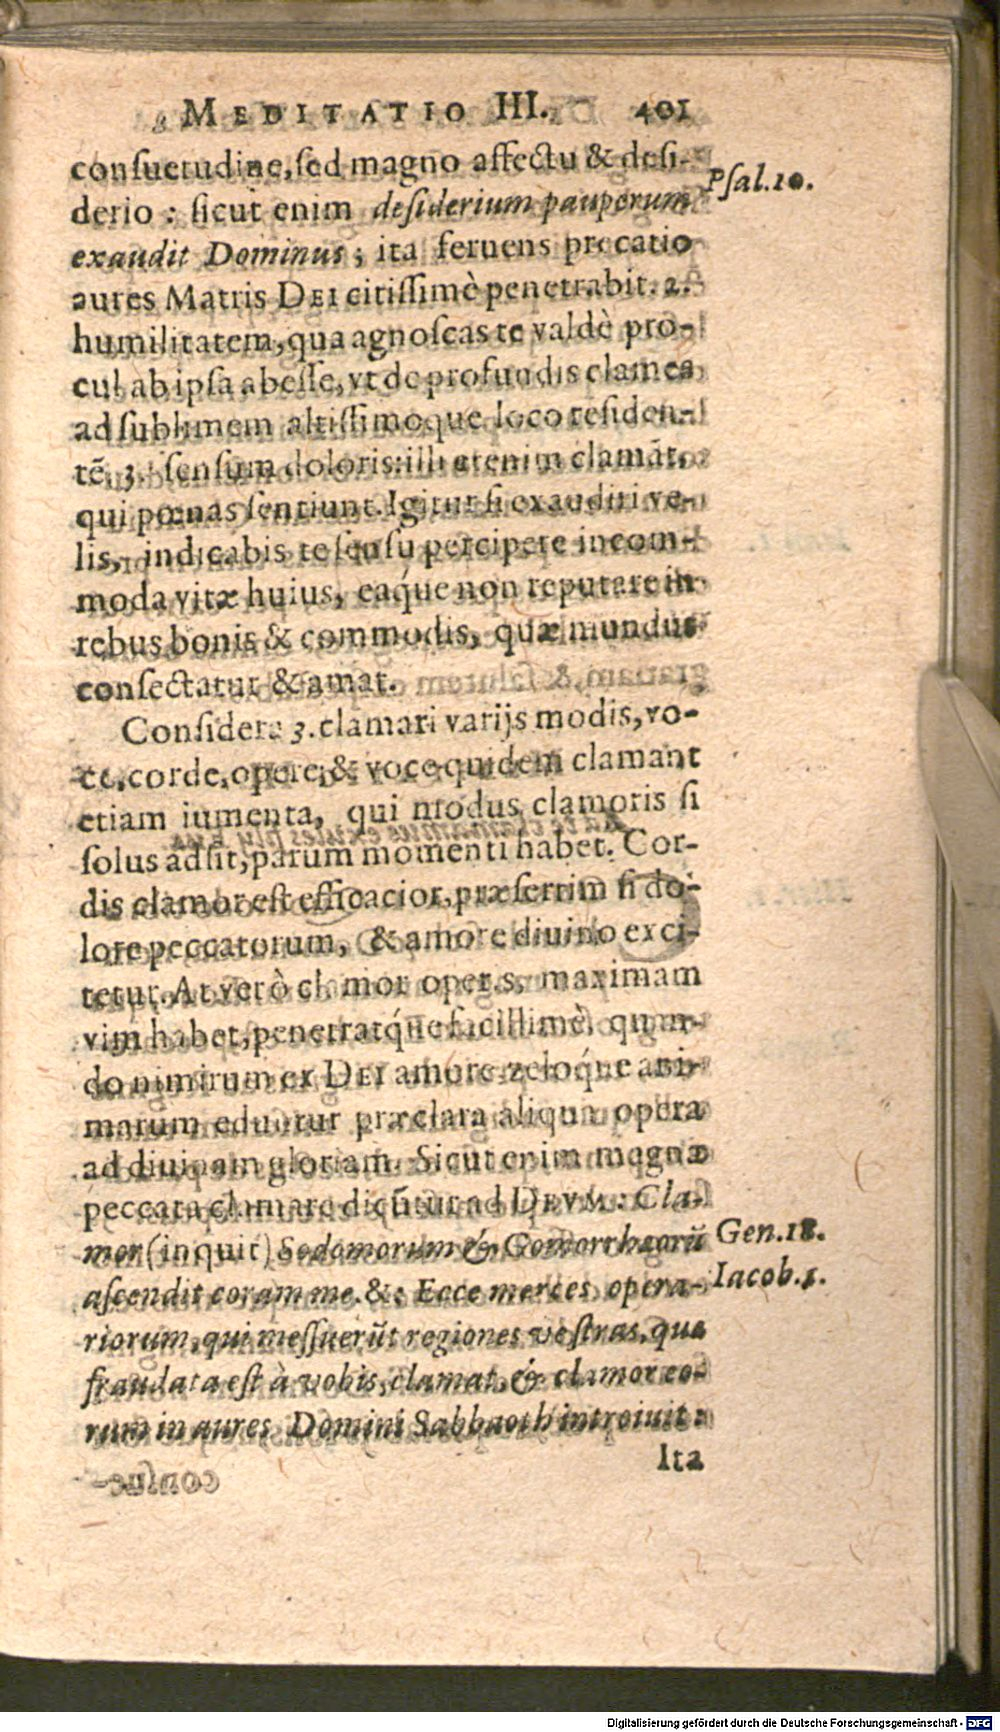 MEDITATIO III. 401
consuetudine, sed magno affectu & desi-
derio : sicut enim desiderium pauperum
Psal.10.
exaudit Dominus ; ita feruens precatio
aures Matris DEI citissimè penetrabit. 2.
humilitatem, qua agnoscas te valdè pro-
cul ab ipsa abesse, vt de profundis clames
ad sublimem altissimoque loco residen-
tẽ. 3. sensum doloris: illi etenim clamãt,
qui pœnas sentiunt. Igitur si exaudiri ve-
lis, indicabis te sensu percipere incom-
moda vitæ huius, eaq́ue non reputare in
rebus bonis & commodis, quæ mundus
consectatur & amat.
Considera 3. clamari varijs modis, vo-
ce, corde, opere; & voce quidem clamant
etiam iumenta, qui modus clamoris si
solus adsit, parum momenti habet. Cor-
dis clamor est efficacior, præsertim si do-
lore peccatorum, & amore diuino exci-
tetur. At verò clamor operis, maximam
vim habet, penetratq́ue facillimè, quan-
do nimirum ex DEI amore zeloq́ue ani-
marum eduntur præclara aliqua opera
ad diuinam gloriam. Sicut enim magna
peccata clamare dicũtur ad DEVM: Cla-
mor (inquit) Sodomorum & Gomorrhæorũ
Gen.18.
ascendit coram me. &: Ecce merces opera-
Iacob.5.
riorum, qui messuerũt regiones vestras, quæ
fraudata est à vobis, clamat, & clamor eo-
rum in aures Domini Sabbaoth introiuit:
Ita
Digitalisierung gefördert durch die Deutsche Forschungsgemeinschaft - DFG